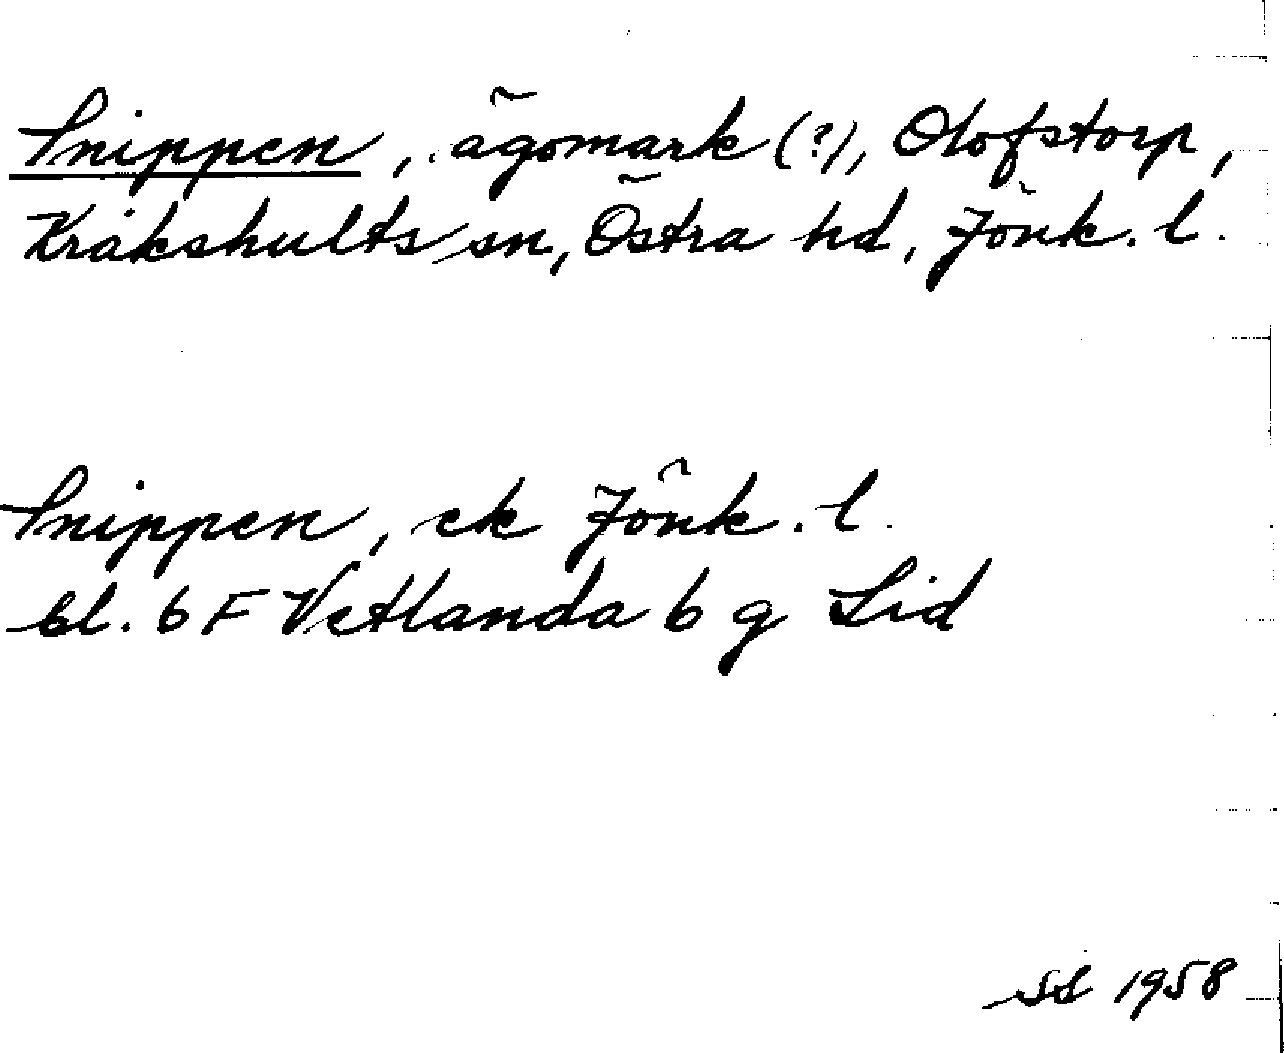 Snippen, ägomark (?), Olofstorp,
Kråkshults sn, Östra hd, Jönk. l.
Snippen, ek Jönk. l.
bl. 6 F Vetlanda 6 g Lid
SS 1958